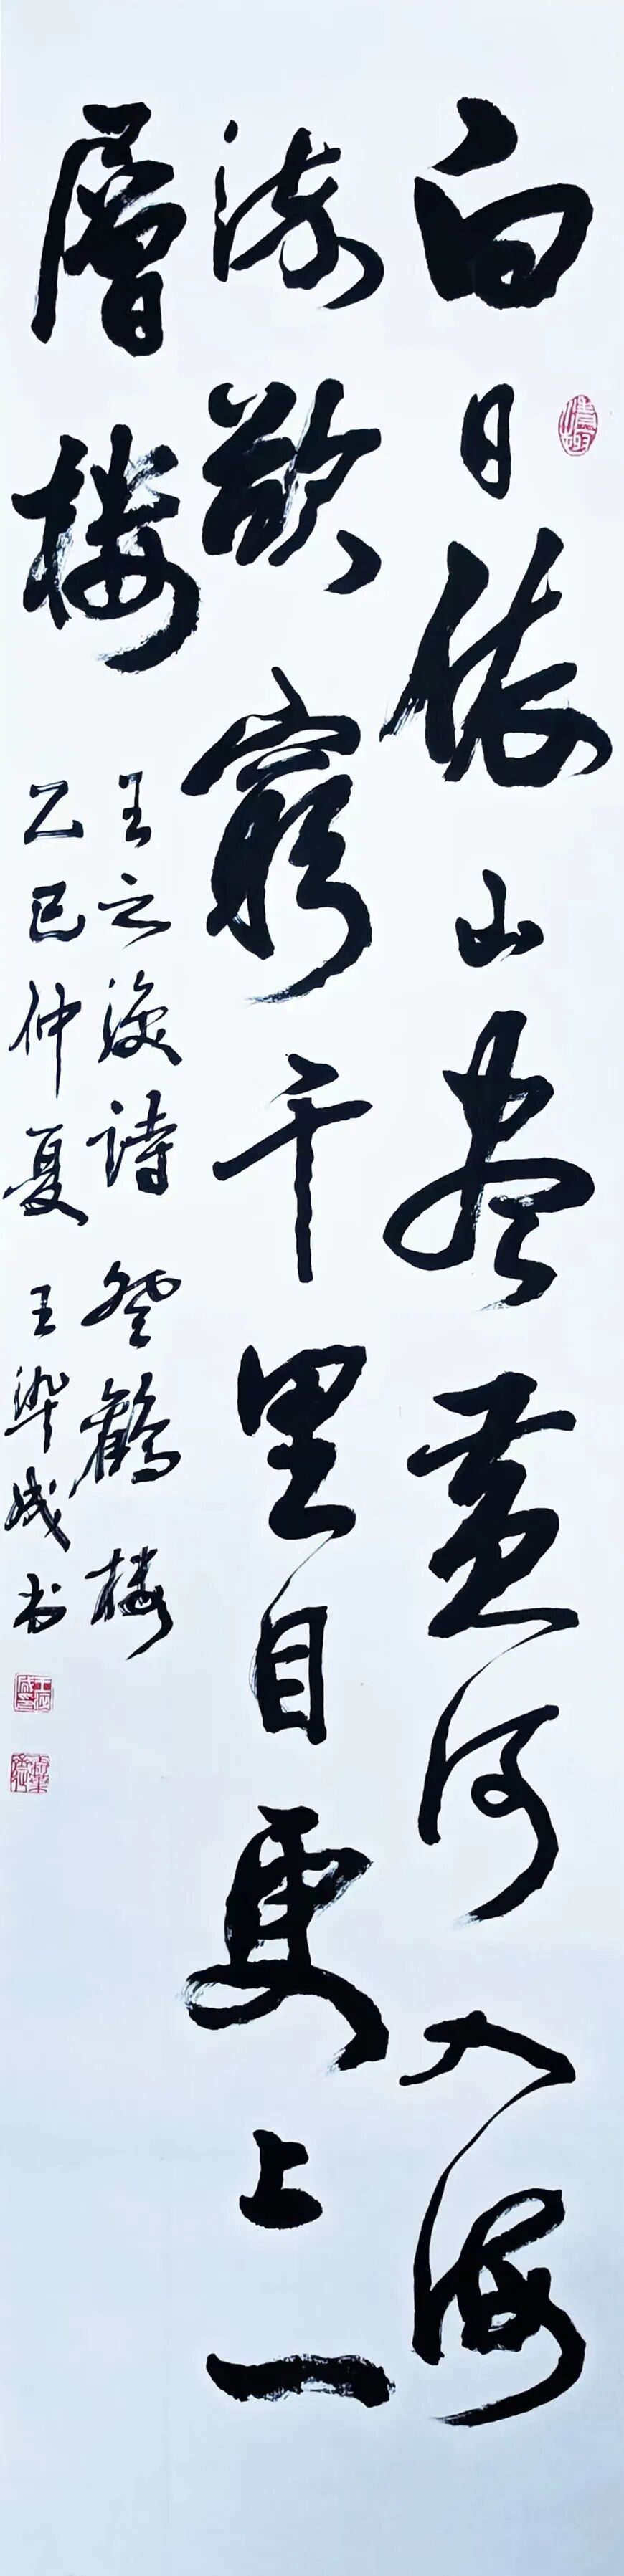 白日依山尽黄河入海
流欲穷千里目更上一
層楼
王之涣诗 登鹳楼
乙巳仲夏 王华成书